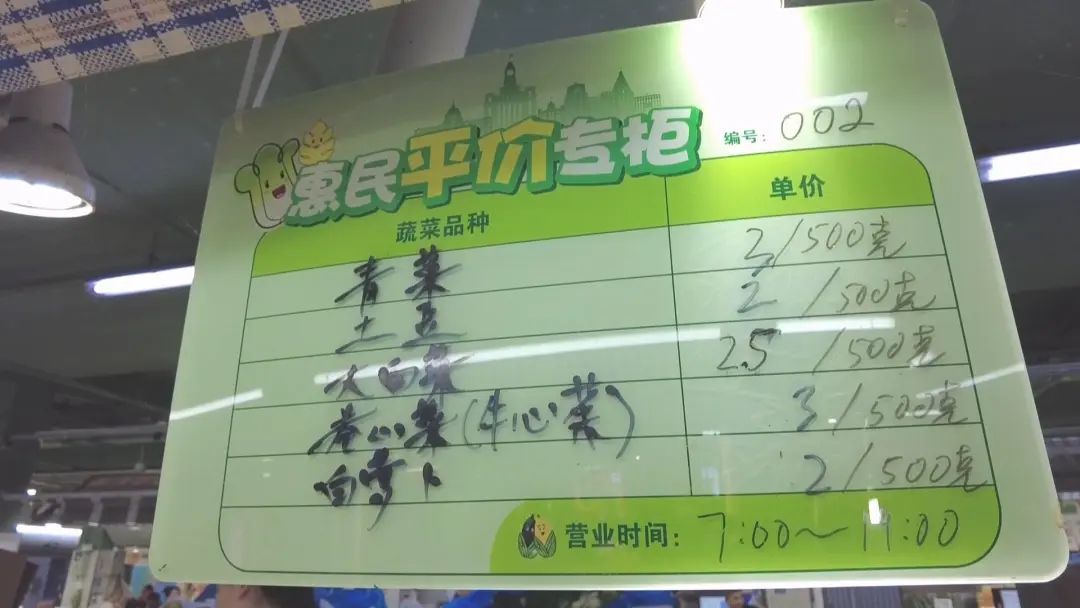 惠民平价专柜
编号：002
蔬菜品种 单价
青菜 2/500克
土豆 2/500克
大白菜 2.5/500克
卷心菜(牛心菜) 3/500克
白萝卜 2/500克
营业时间：7:00~19:00